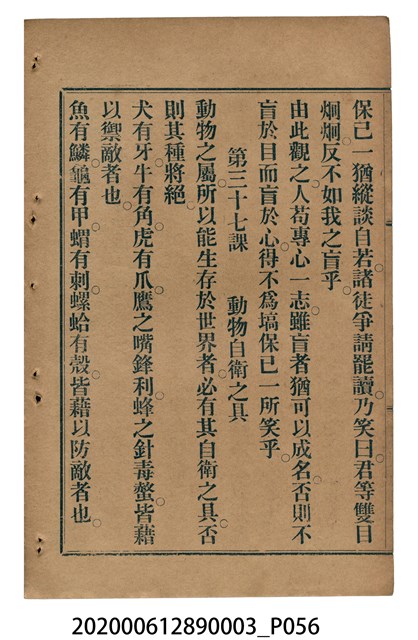 保己一猶縱談自若。諸徒爭請罷讀。乃笑曰。君等雙目
炯炯。反不如我之盲乎。
由此觀之。人苟專心一志。雖盲者猶可以成名。否則不
盲於目而盲於心。得不為塙保己一所笑乎。
第三十七課　動物自衛之具
動物之屬。所以能生存於世界者。必有其自衛之具。否
則其種將絕。
犬有牙。牛有角。虎有爪。鷹之嘴鋒利。蜂之針毒螫。皆藉
以禦敵者也。
魚有鱗。龜有甲。蝟有刺。螺蛤有殼。皆藉以防敵者也。
202000612890003_P056